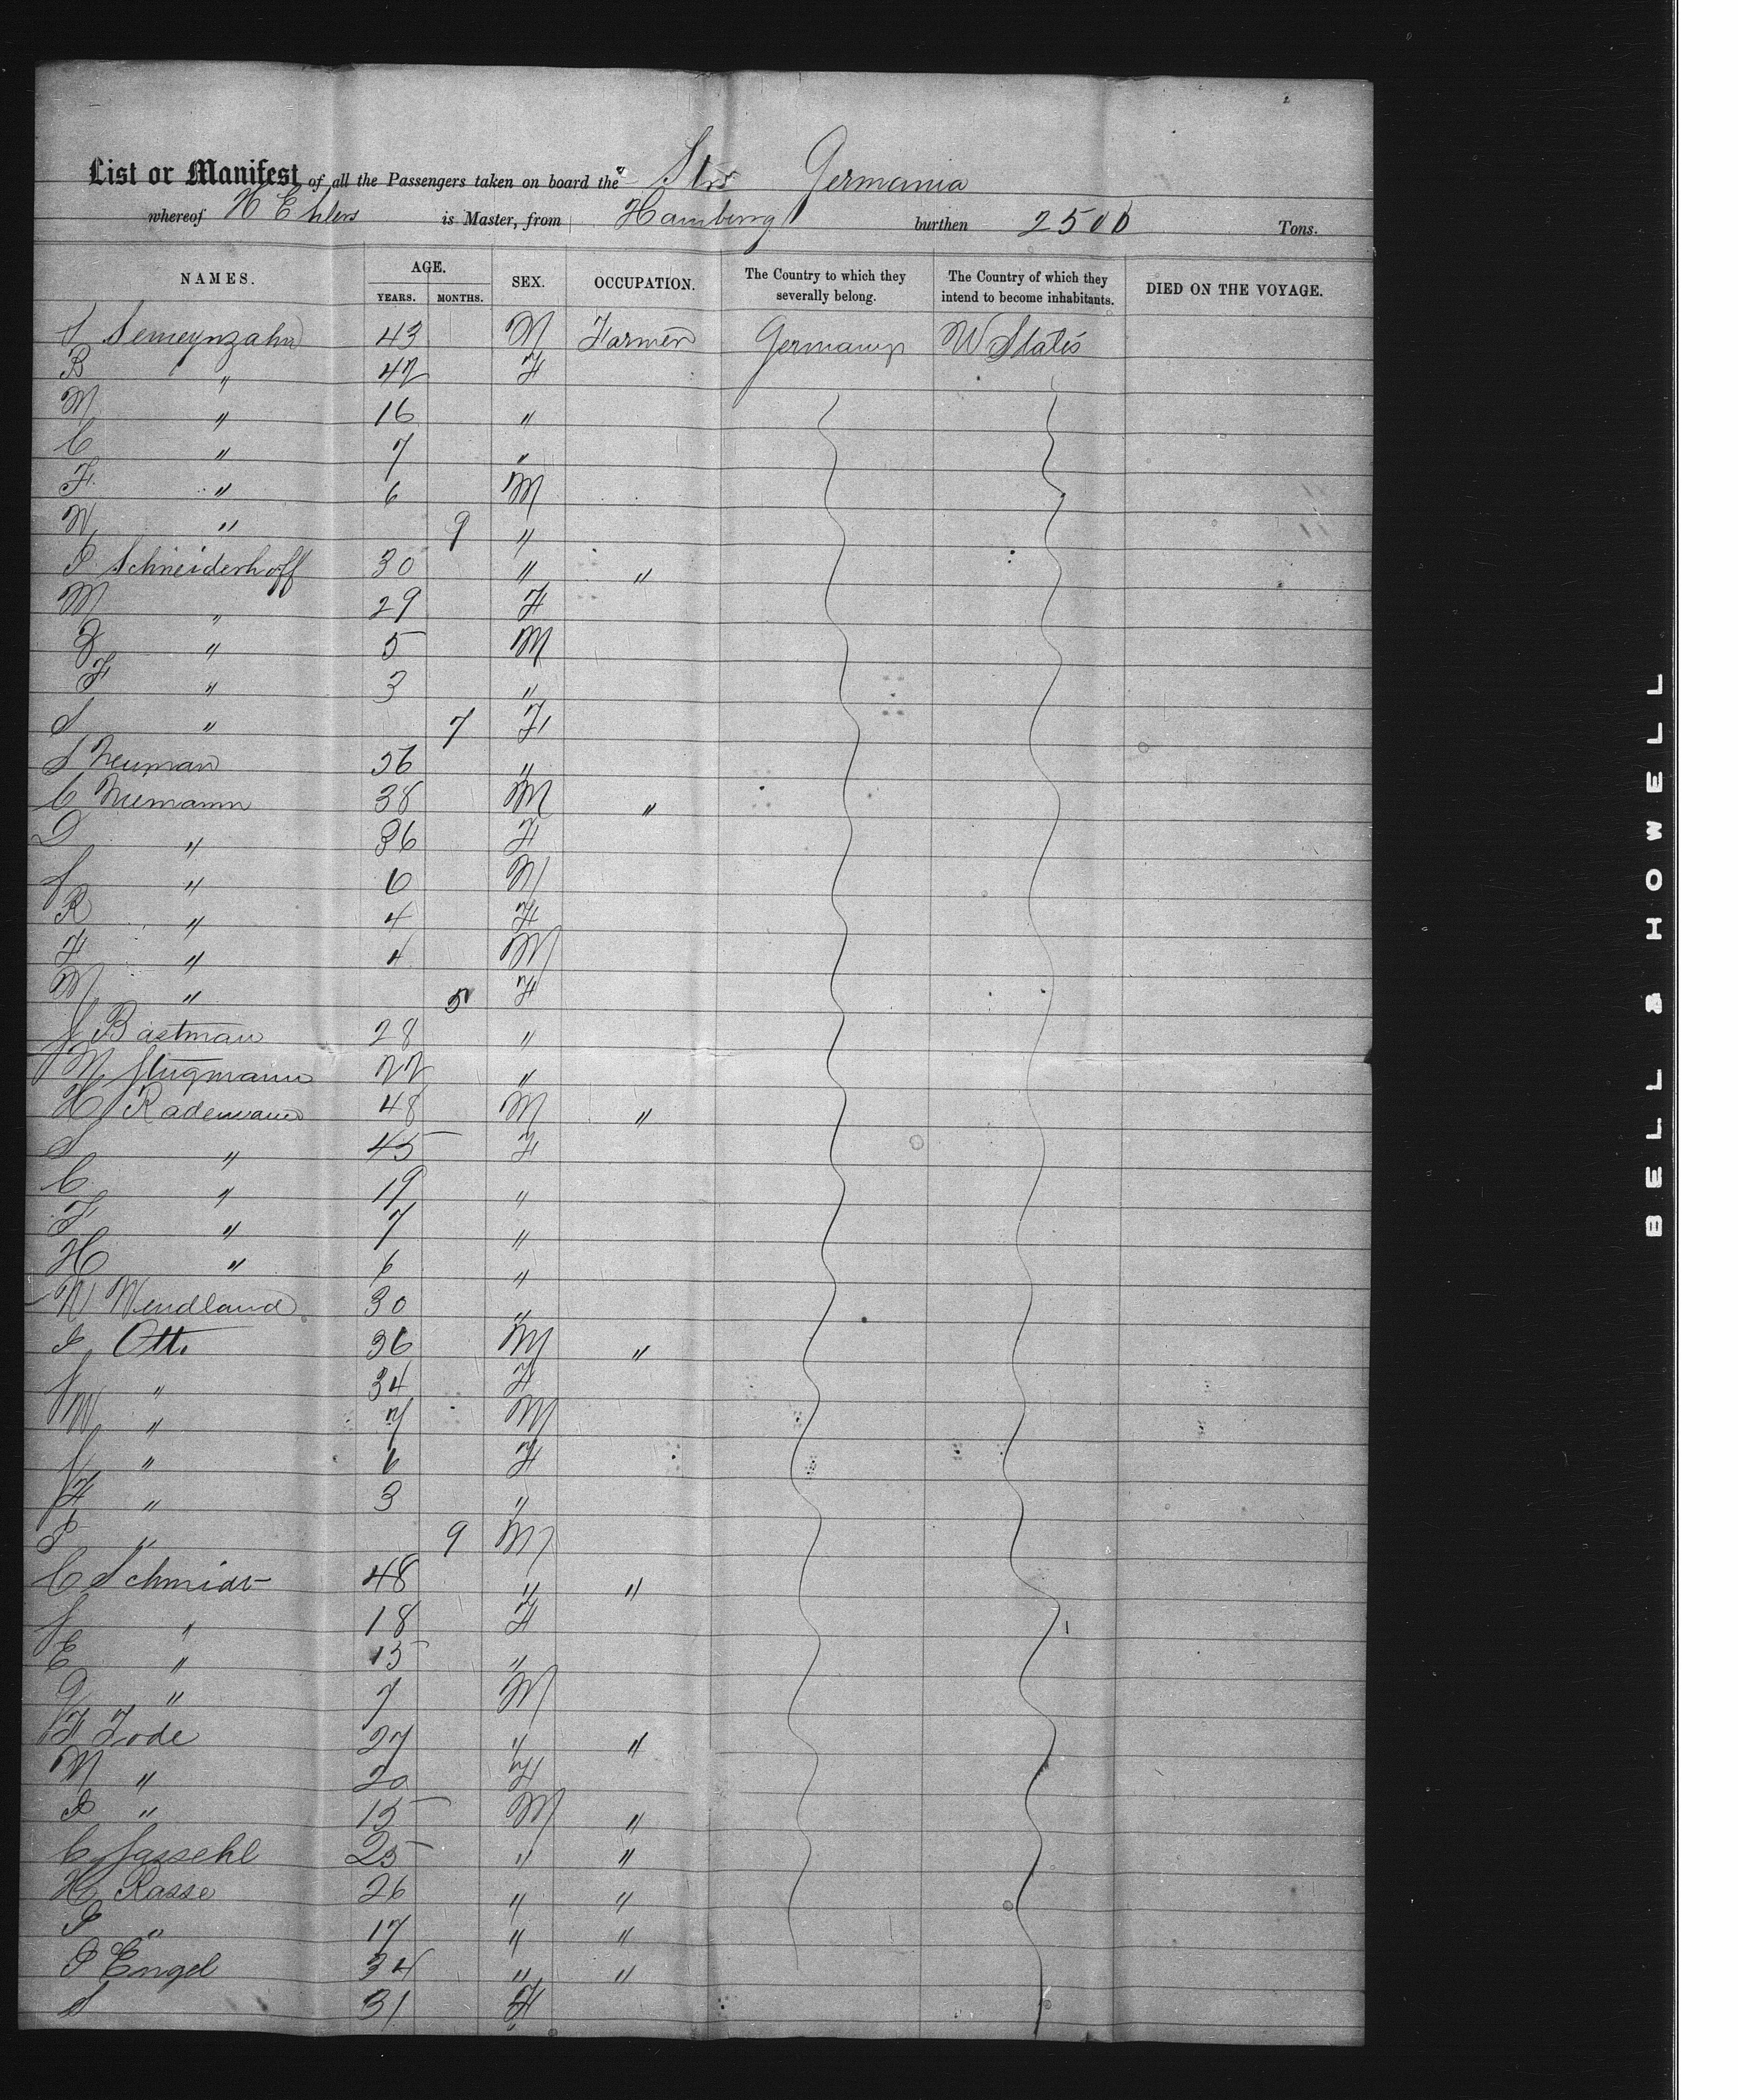 List or Manifest of all the Passengers taken on board the Str Germania
whereof H Ehlers is Master, from Hamburg burthen 2500 Tons.
NAMES. AGE. SEX. OCCUPATION. The Country to which they severally belong. The Country of which they intend to become inhabitants. DIED ON THE VOYAGE.
YEARS. MONTHS.
43 M Farmer Germany U States
B " 42 F
M " 16 "
C " 7 "
F " 6 M
W " 9 "
Schneiderhoff 30 " "
M " 29 F
" 5 M
F " 3 "
S " 7 F
S Neuman 56 "
C Niemann 38 M "
D " 36 F
" 6 M
R " 4 F
F " 4 M
M " 5 F
J Bastman 28 "
M 22 "
H Rademann 48 M "
S " 45 F
C " 19 "
F " 7 "
H " 6 "
W Wendland 30 "
Ott 36 M "
" 34 F
W " 7 M
" 6 F
H " 3 "
" 9 M
C Schmidt 48 " "
" 18 F
E " 15 "
" 7 M
F Tode 27 " "
M " 20 F
" 15 M "
C Jassehl 25 " "
H Rasse 26 " "
" 17 " "
Engel 34 " "
S 31 F
BELL & HOWELL